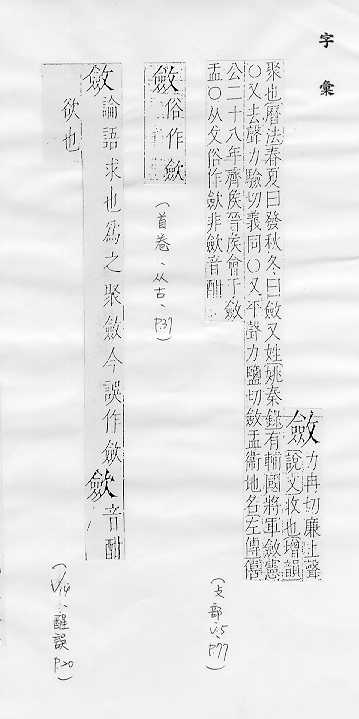 字彙
斂力冉切廉上聲
說文收也增韻
聚也曆法春夏曰發秋冬曰斂又姓姚秦錄有輔國將軍斂憲
○又去聲力驗切義同○又平聲力鹽切斂盂衞地名左傳僖
公二十八年齊矦晉矦會于斂
盂○从攵俗作歛非歛音酣
(攴部、V.5、P.77)
斂俗作歛
(首卷、从古、P.37)
斂論語求也為之聚斂今誤作歛歛音酣
欲也
(V.14、醒誤P.20)